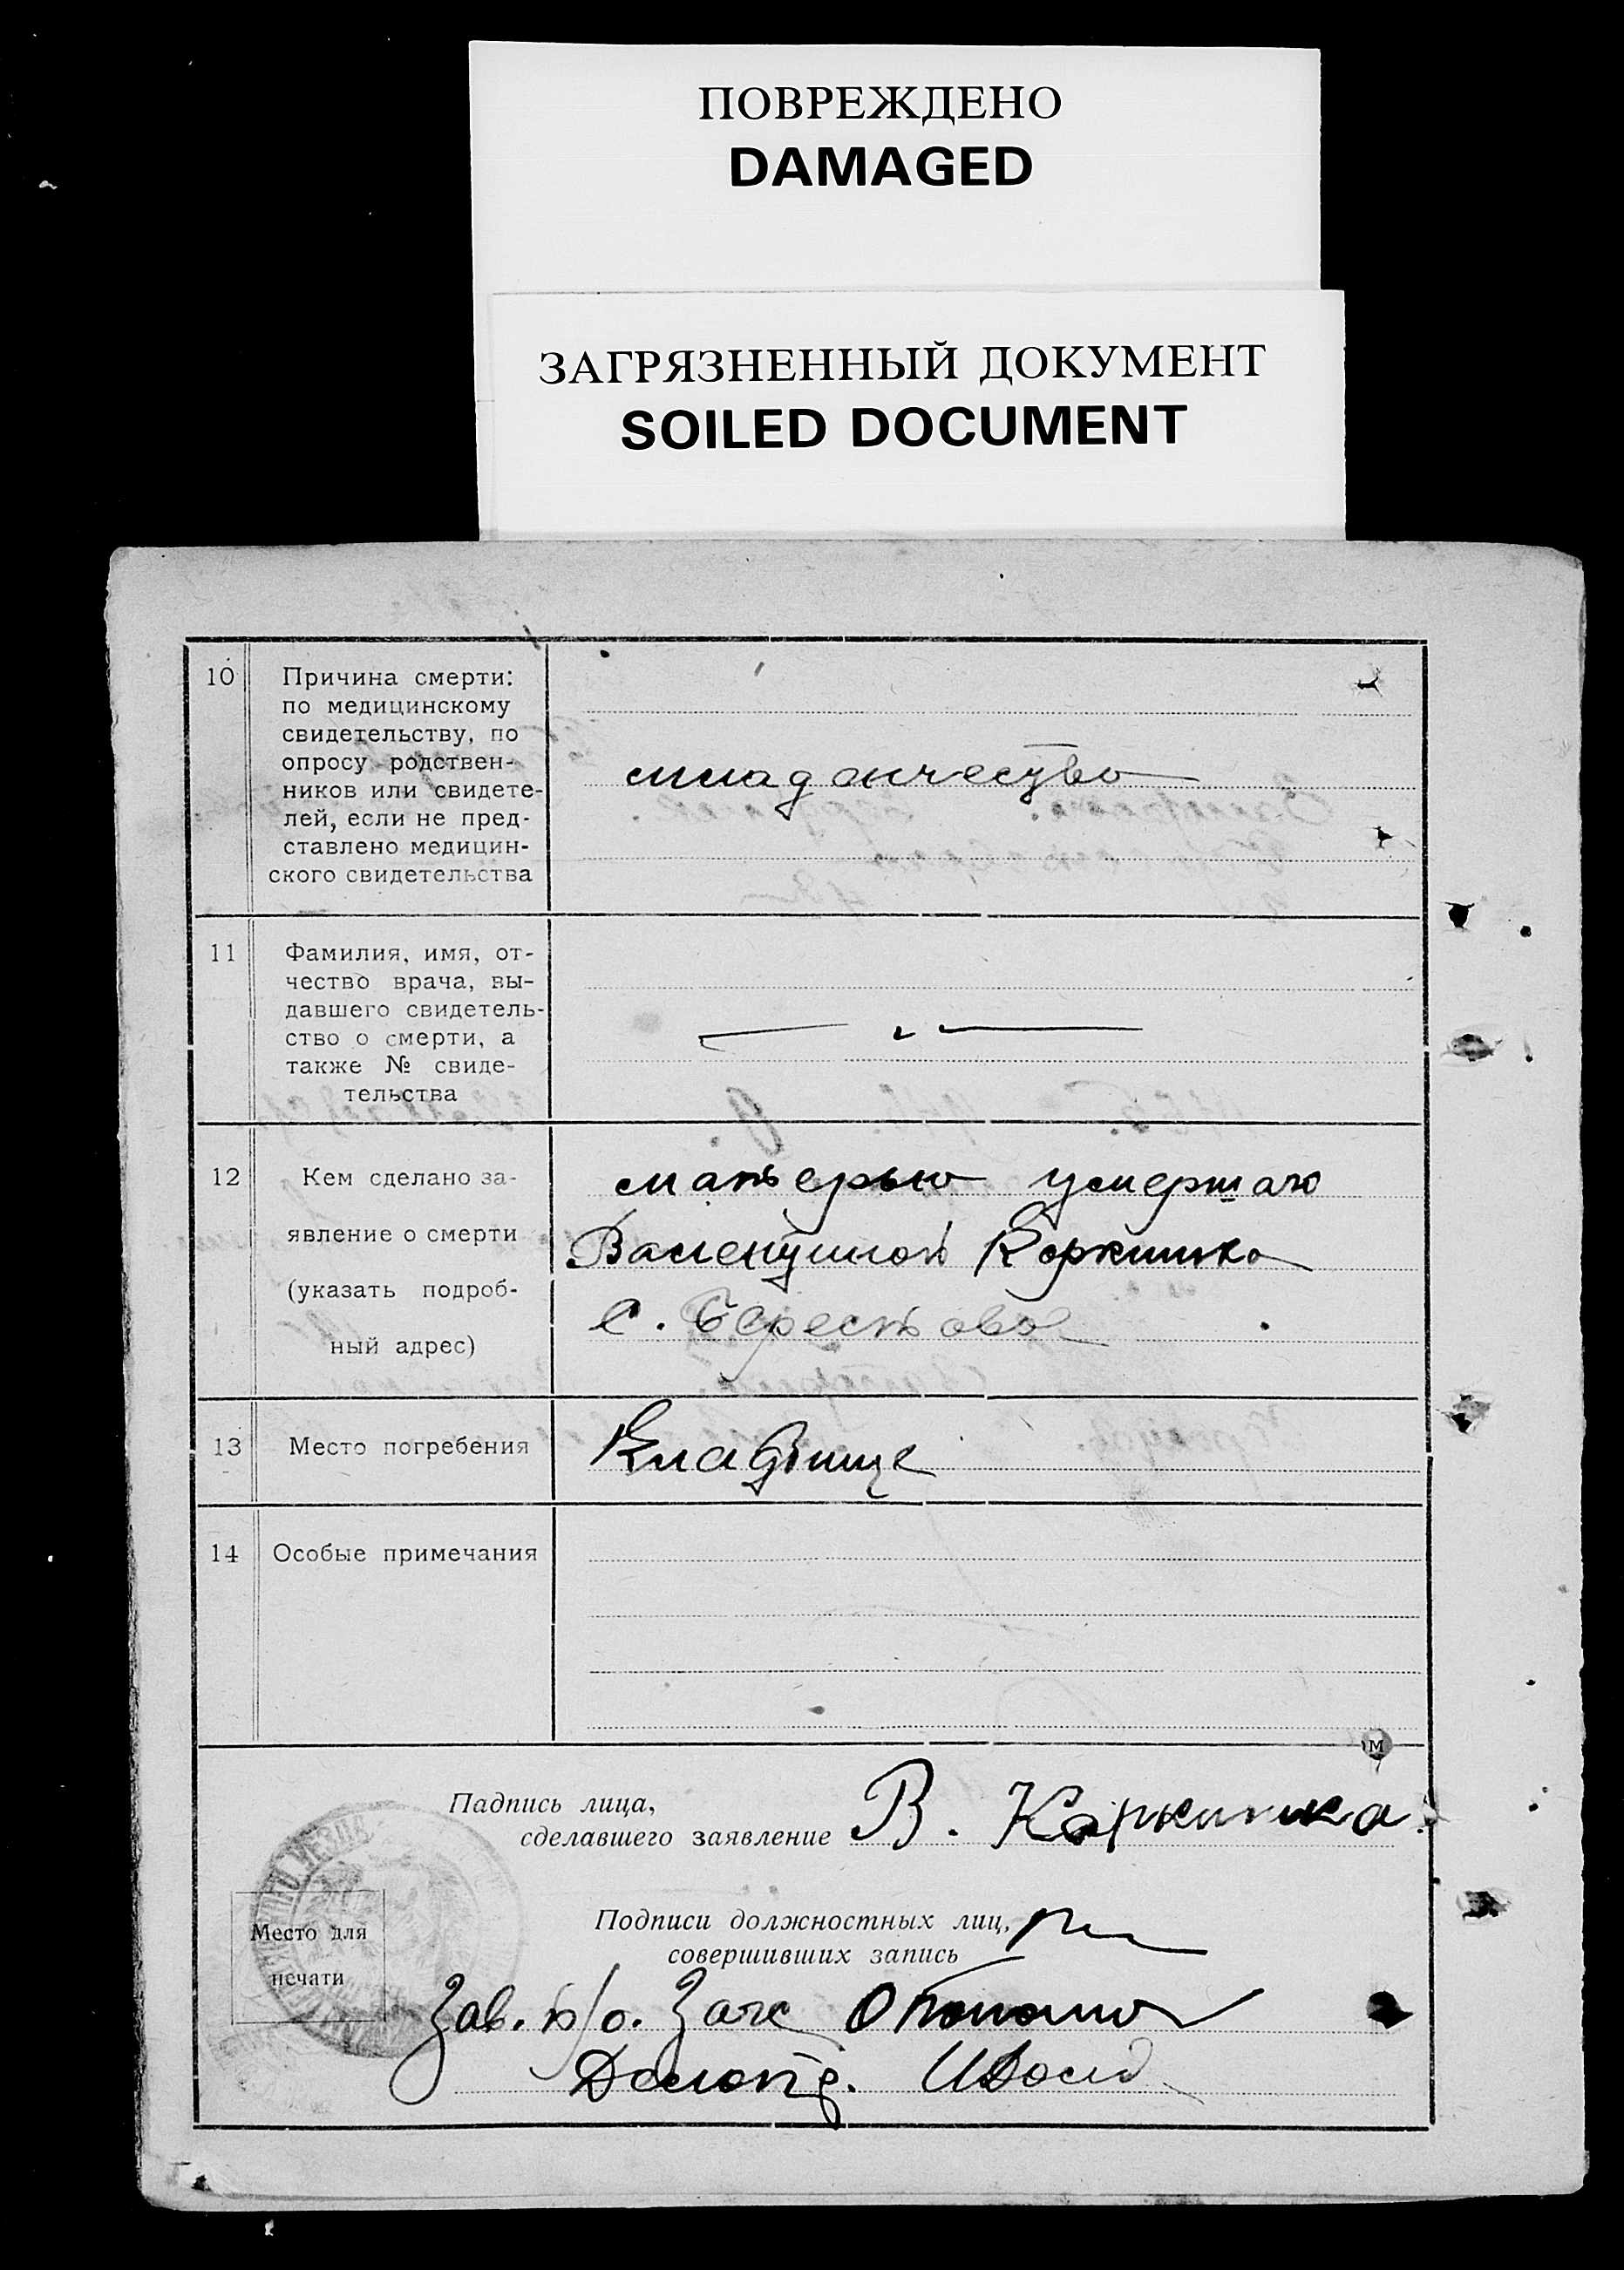 ПОВРЕЖДЕНО
DAMAGED
ЗАГРЯЗНЕННЫЙ ДОКУМЕНТ
SOILED DOCUMENT
10
Причина смерти:
по медицинскому
свидетельству, по
опросу родствен-
ников или свидете-
лей, если не пред-
ставлено медицин-
ского свидетельства
младенчество
11
Фамилия, имя, от-
чество врача, вы-
давшего свидетель-
ство о смерти, а
также № свиде-
тельства
— " —
12
Кем сделано за-
явление о смерти
(указать подроб-
ный адрес)
матерью умершаго
Валентиной Коржишка
с. Берестово
13
Место погребения
Кладбище
14
Особые примечания
м
Падпись лица,
сделавшего заявление
В.
Место для
печати
Подписи должностных лиц,
совершивших запись
Зав. п/о. Загс